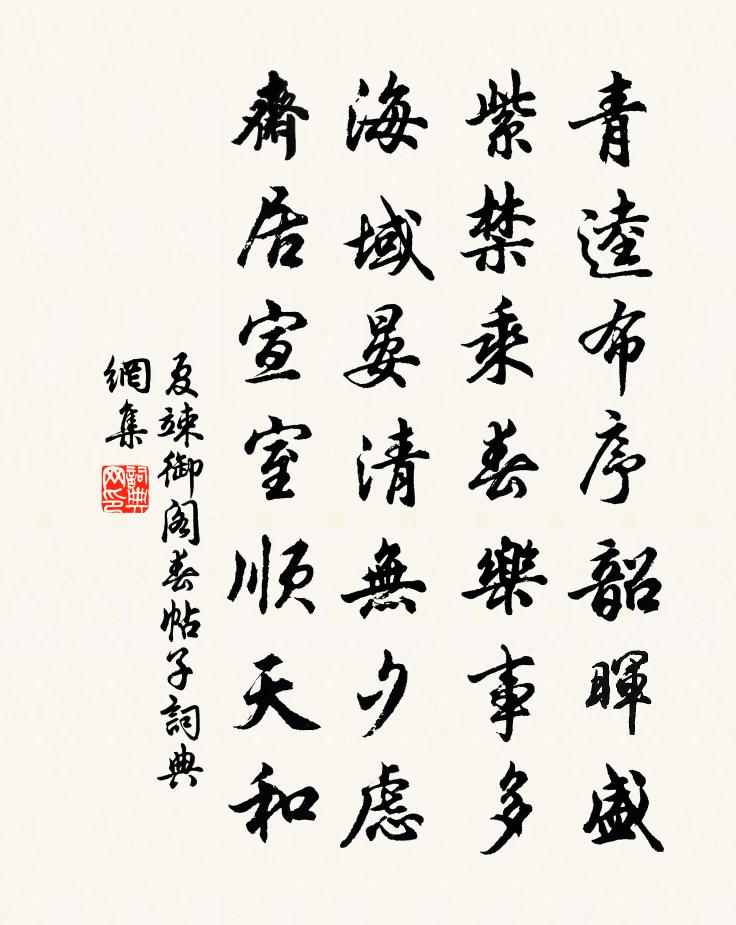 青逵布序韶暉盛
紫禁乘春樂事多
海域晏清無夕慮
齋居宣室順天和
夏竦御閣春帖子詞典
網集
詞典
网印